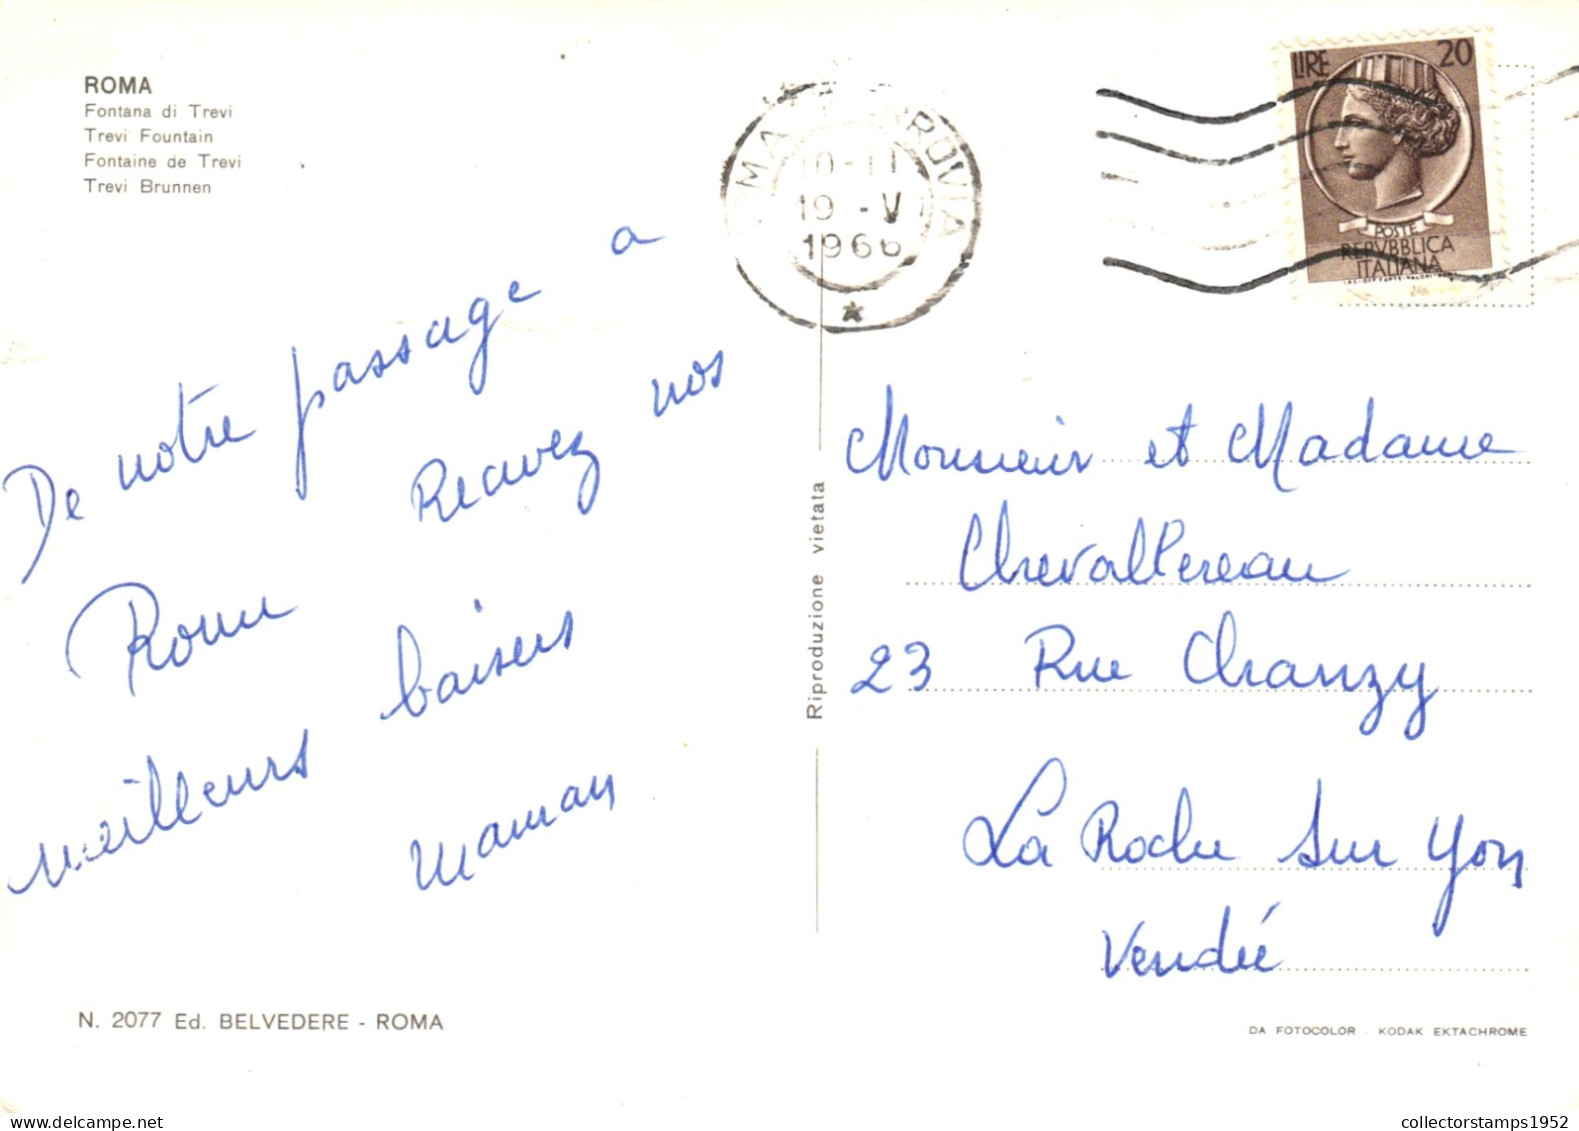 ROMA
Fontana di Trevi
Trevi Fountain
Fontaine de Trevi
Trevi Brunnen
10-11
19 - V
1966
LIRE 20
POSTE
REPVBBLICA
ITALIANA
De notre passage a
Rome Recevez nos
meilleurs baisers
Maman
Riproduzione vietata
Monsieur et Madame
Chevallereau
23 Rue Chanzy
La Roche Sur Yon
Vendée
N. 2077 Ed. BELVEDERE - ROMA
DA FOTOCOLOR KODAK EKTACHROME
collectorstamps1952